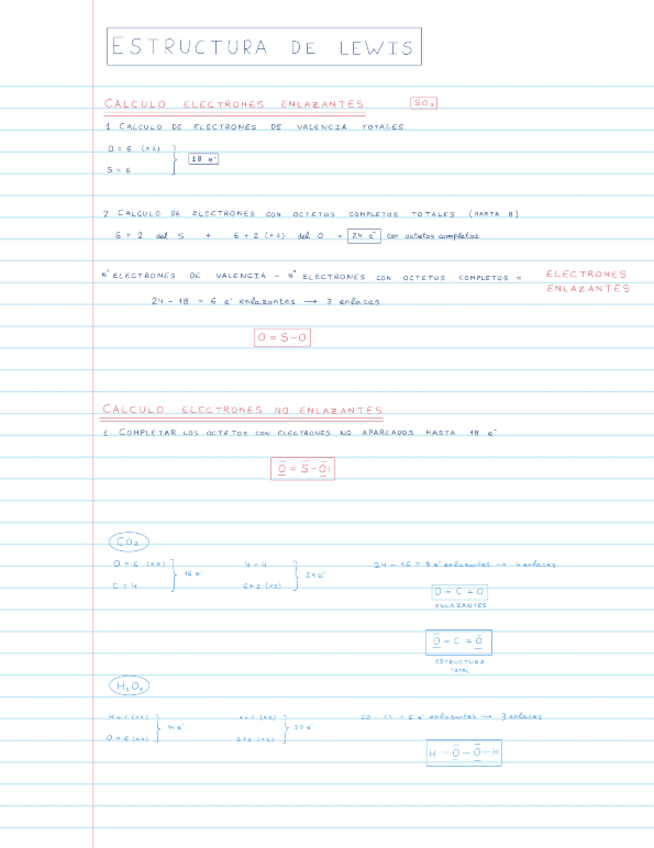 ESTRUCTURA DE LEWIS
CALCULO ELECTRONES ENLAZANTES SO₂
1 CALCULO DE ELECTRONES DE VALENCIA TOTALES
O = 6 (×2)
S = 6
18 e⁻
2 CALCULO DE ELECTRONES CON OCTETOS COMPLETOS TOTALES (HASTA 8)
6 + 2 del S + 6 + 2 (×2) del O = 24 e⁻ con octetos completos.
Nº ELECTRONES DE VALENCIA - Nº ELECTRONES CON OCTETOS COMPLETOS = ELECTRONES ENLAZANTES
24 - 18 = 6 e⁻ enlazantes → 3 enlaces
O = S - O
CALCULO ELECTRONES NO ENLAZANTES
1. COMPLETAR LOS OCTETOS CON ELECTRONES NO APAREADOS HASTA 18 e⁻
O = S - O
CO₂
O = 6 (×2)
C = 4
16 e⁻
4 + 4
6+2 (×2)
24 e⁻
24 - 16 = 8 e⁻ enlazantes → 4 enlaces
O = C = O
ENLAZANTES
O = C = O
ESTRUCTURA
TOTAL
H₂O₂
H = 1 (×2)
O = 6 (×2)
14 e⁻
1+1 (×2)
6+2 (×2)
20 e⁻
20 - 14 = 6 e⁻ enlazantes → 3 enlaces
H - O - O - H